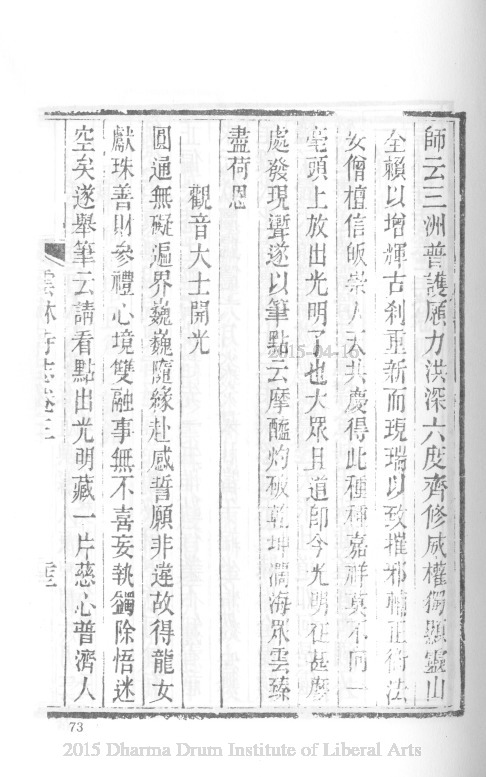 師云三洲普護願力洪深六度齊修威權獨顯靈山
全賴以增輝古刹重新而現瑞以致摧邪輔正衛法
女僧檀信皈崇人天共慶得此種種嘉祥莫不同一
毫頭上放出光明了也大眾且道即今光明在甚麼
處發現遂以筆點云摩醯灼破乾坤濶海眾雲臻
盡荷恩
觀音大士開光
圓通無礙遍界巍巍隨緣赴感誓願非違故得龍女
獻珠善財參禮心境雙融事無不喜妄執蠲除悟迷
空矣遂舉筆云請看點出光明藏一片慈心普濟人
雲林寺志卷三
2015-04-16
73
2015 Dharma Drum Institute of Liberal Arts